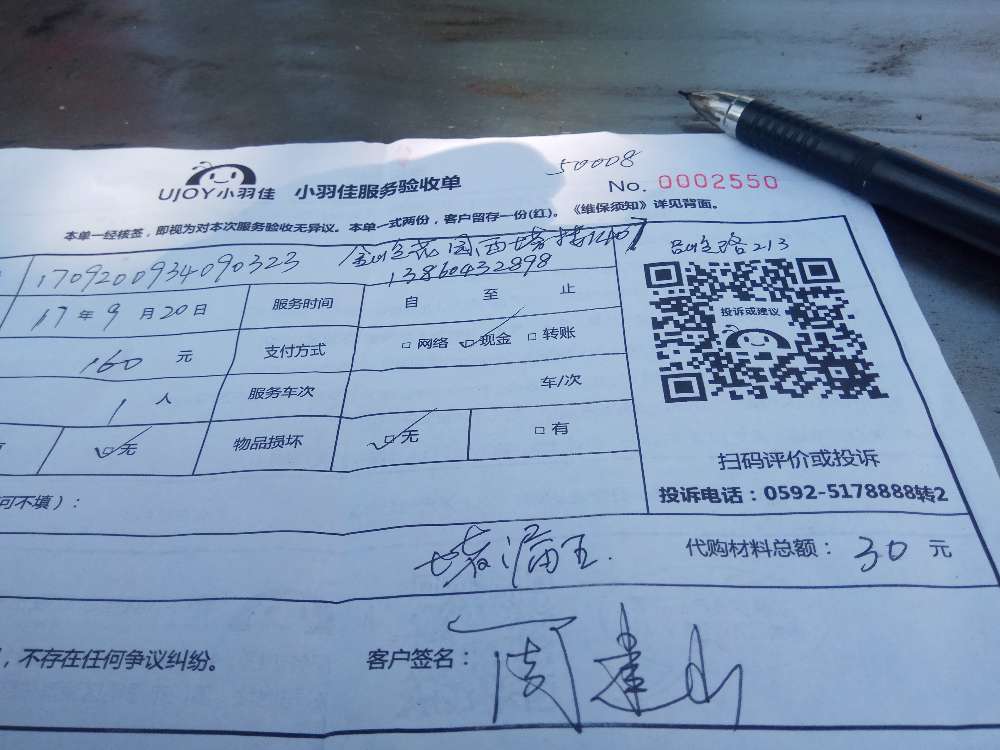 50008
UJOY小羽佳 小羽佳服务验收单 No. 0002550
本单一经核签，即视为对本次服务验收无异议。本单一式两份，客户留存一份(红)。《维保须知》详见背面。
1709200934090323
13860432898
213
17 年 9 月 20 日 服务时间 自 至 止
投诉或建议
160 元 支付方式 □ 网络 ☑ 现金 □ 转账
1 人 服务车次 车/次
☑ 无 物品损坏 ☑ 无 □ 有
扫码评价或投诉
投诉电话：0592-5178888转2
可不填）：
堵漏王. 代购材料总额：30 元
，不存在任何争议纠纷。 客户签名：周建山